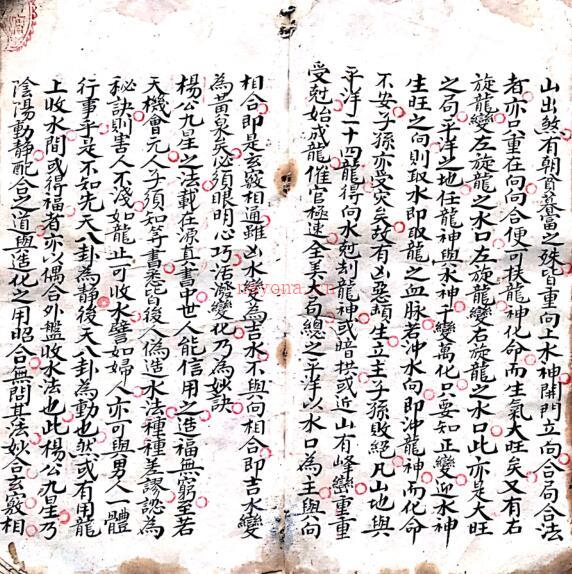 山出煞有朝貧暮富之殊皆重向上水神開門立向合局合法
者亦只重在向向合便可扶龍神化命而生氣大旺矣又有右
旋龍變左旋龍之水口左旋龍變右旋龍之水口此亦是大旺
之局平洋之地任龍神與水神千變萬化只要知正變迎水神
生旺之向則取水即取龍之血脉若冲水向即冲龍神而化命
不安子孫亦受灾矣故有凶惡類生立主子孫敗絕凡山地與
平洋二十四龍得向水尅刦龍神或暗拱或近山有峰巒重重
受尅始成龍催官極速全美大局總之平洋以水口為主與向
相合即是玄竅相通雖凶水變為吉水不與向相合即吉水變
為黃泉矣必須眼明心巧活潑變化乃為妙訣
楊公九星之法載在源真書中世人能信用之造福無窮至若
天機會元人子須知等書悉皆後人偽造水法種種差謬認為
秘訣則害人不淺如龍止可收水譬如婦人亦可與男人一體
行事乎是不知先天八卦為靜後天八卦為動也然或有用龍
上收水間或得福者亦以偶合外盤收水法也此楊公九星乃
陰陽動靜配合之道與造化之用昭合無間其法妙合玄竅相